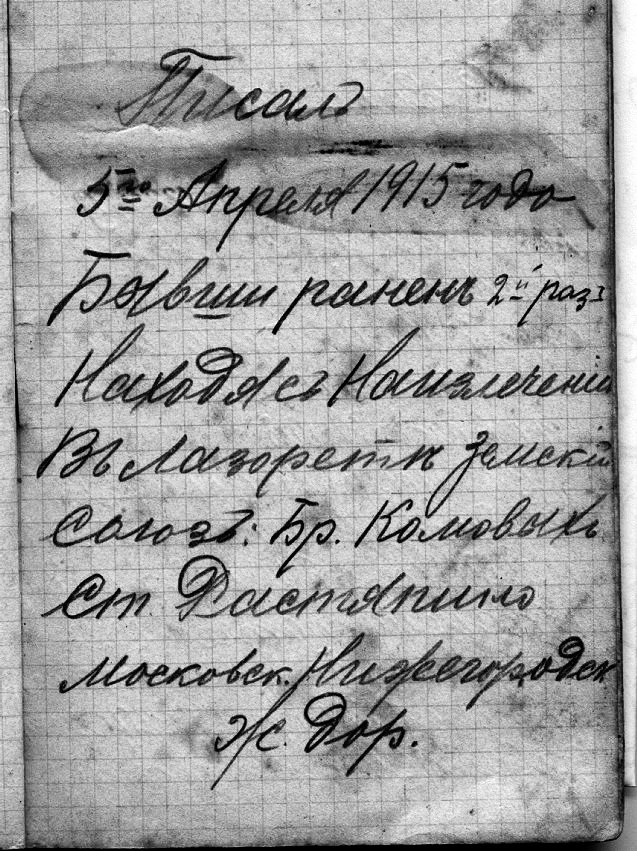 Писалъ
5го Апреля 1915 годо
Бывши раненъ 2й разъ
Находясъ Наизлечении
Въ лазоретѣ Земскій
союзъ: Бр. Комовыхъ
Ст. Растяпино
Московск. Нижегородск
Ж. Дор.